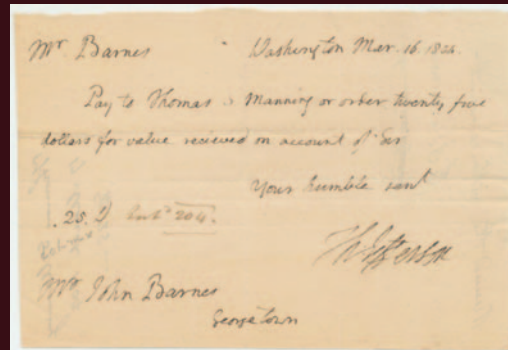 Mr. Barnes Washington Mar. 16. 180
Pay to Thomas Manning or order twenty five
dollars for value recieved on account of Sir
Your humble servt
.25. D
Th Jefferson
Mr. John Barnes
George town